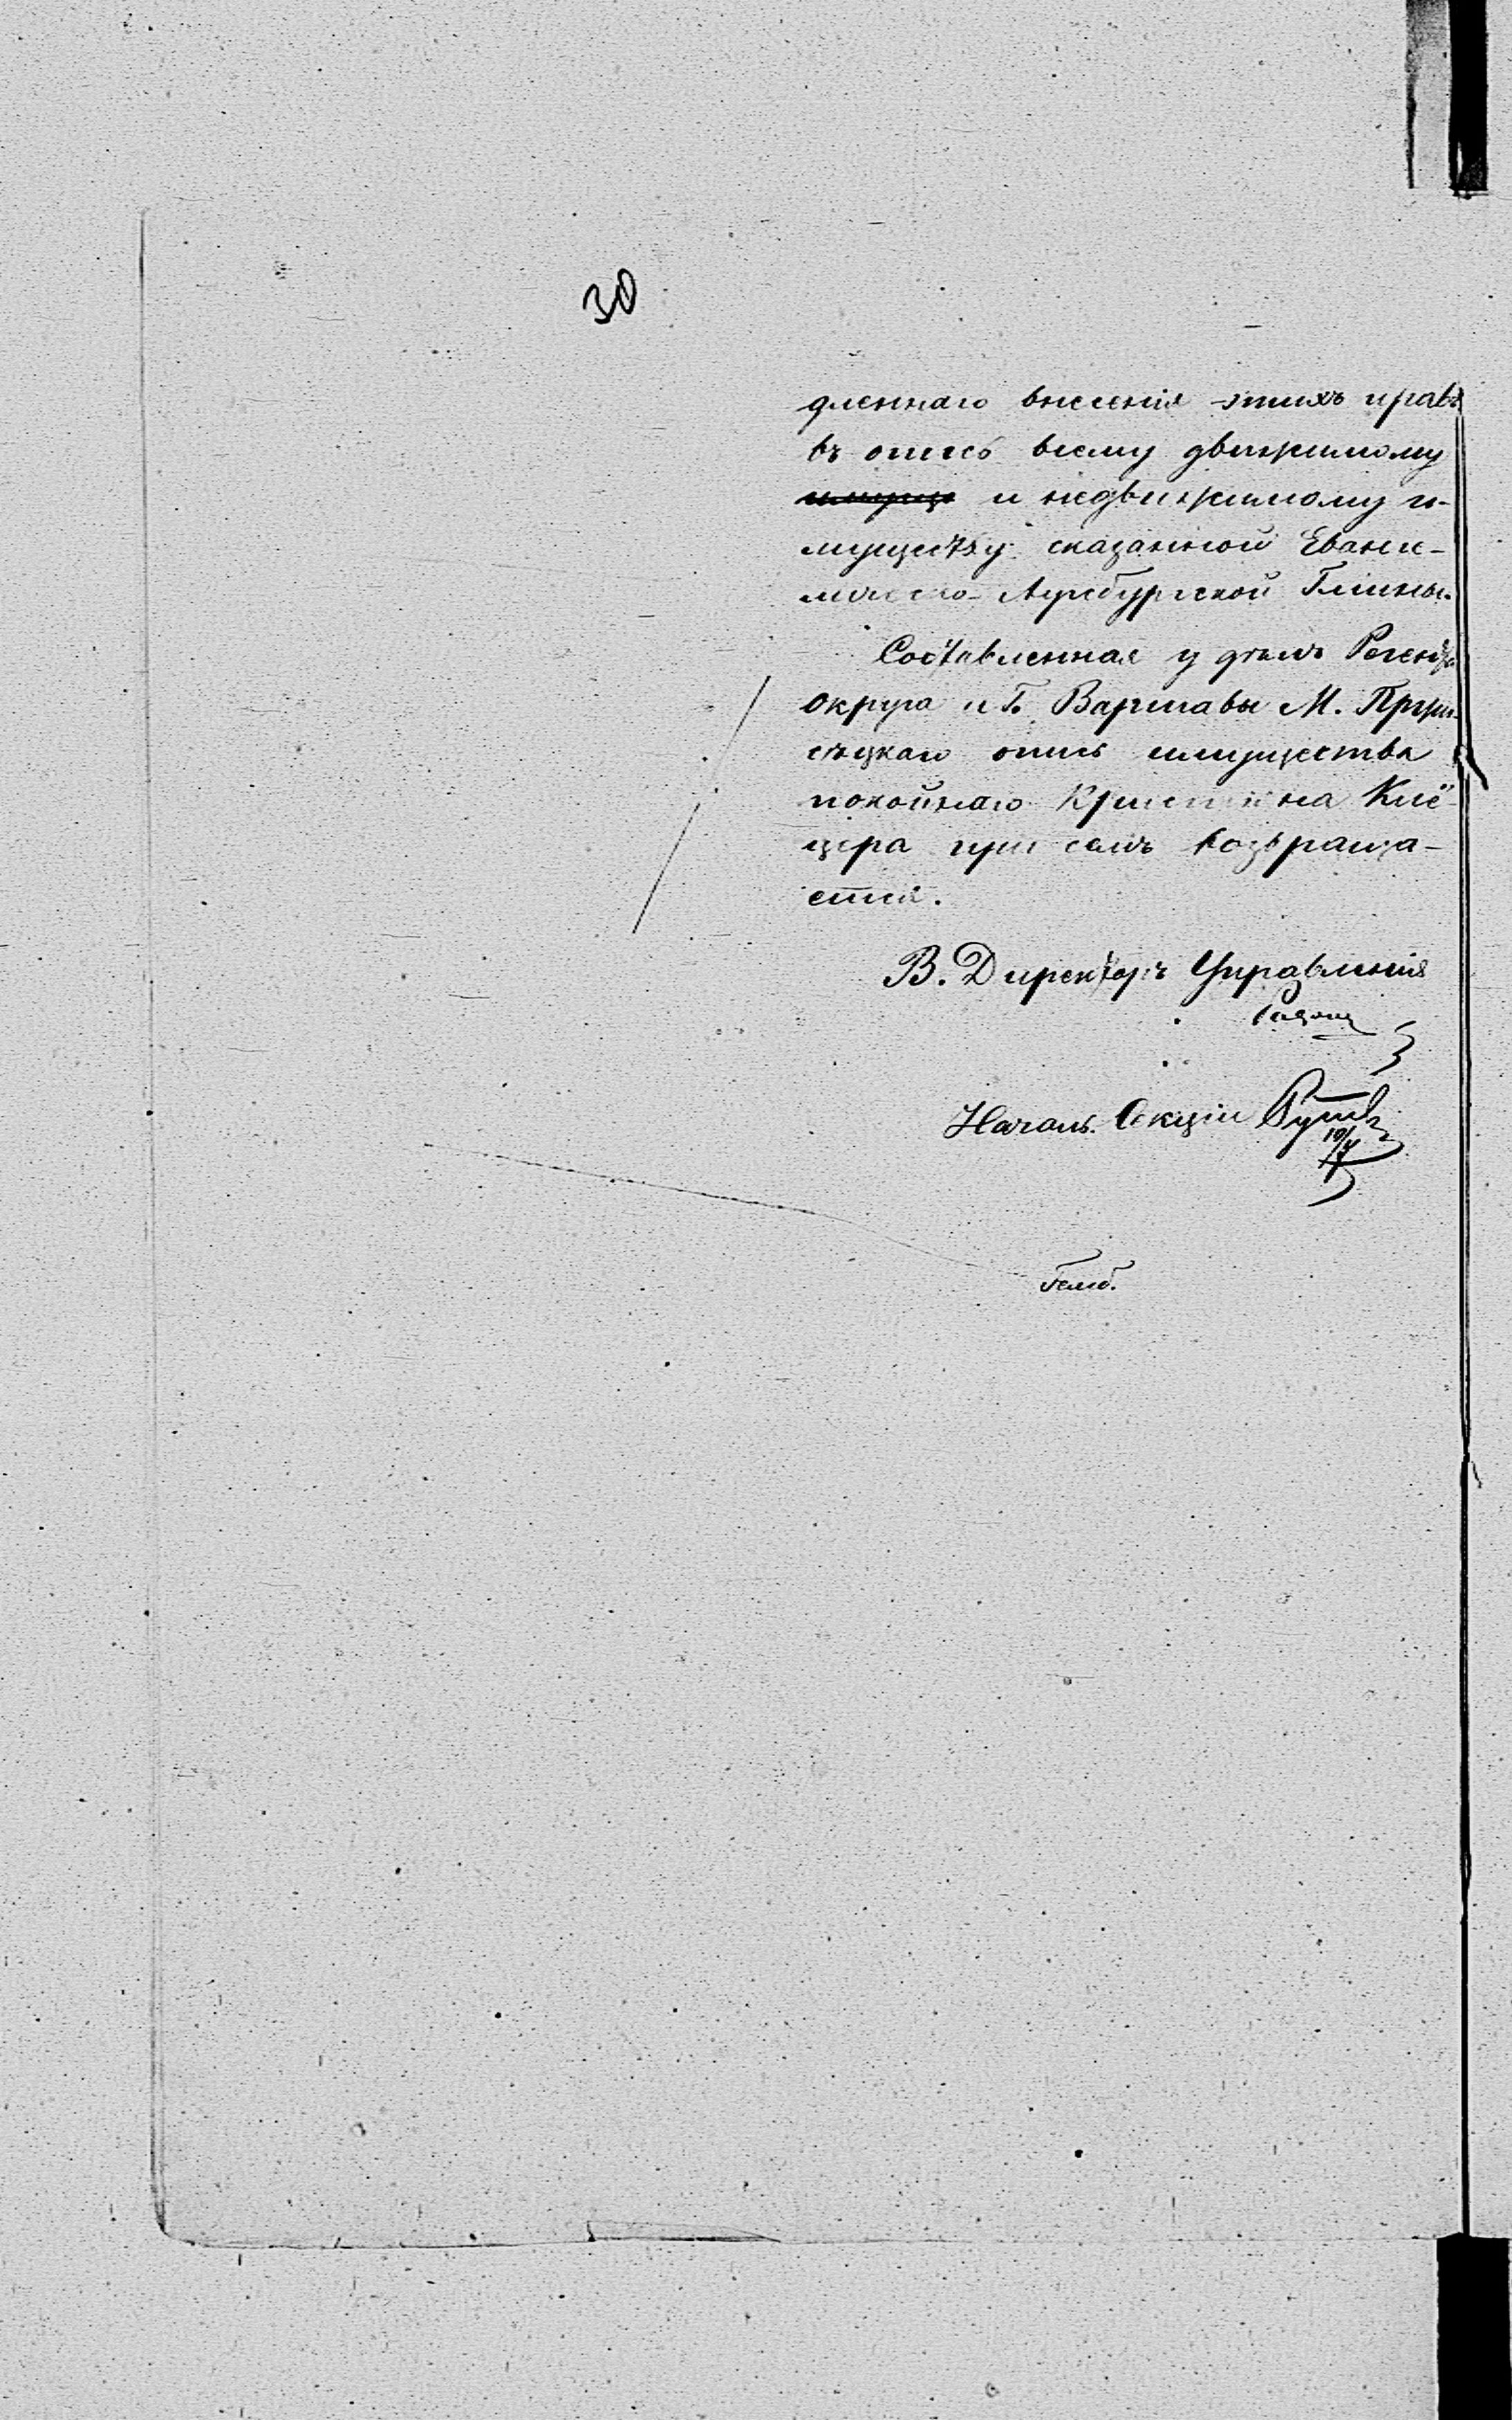 30
дленнаго внесенія этихъ правъ
въ опись всему движимому
и недвижимому и-
муществу сказанной Еванге-
лическо-Аугсбургской Гмины.
Составленная у дѣлъ Регента
округа и Г. Варшавы М.
опись имущества
покойнаго Кристіяна Клё-
цера при семъ возвраща-
ется.
В. Директоръ Управленія
Началь. Секціи